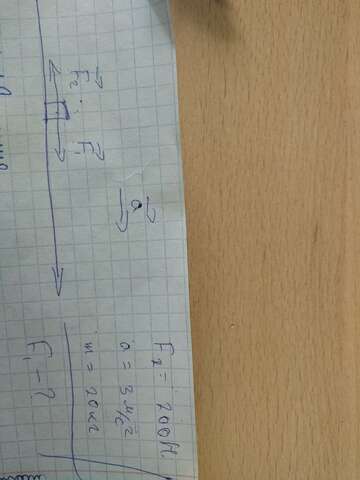 F⃗₂
F⃗₁
a⃗
F₂ = 200 Н.
a = 3 м/с²
m = 20 кг
F₁ - ?